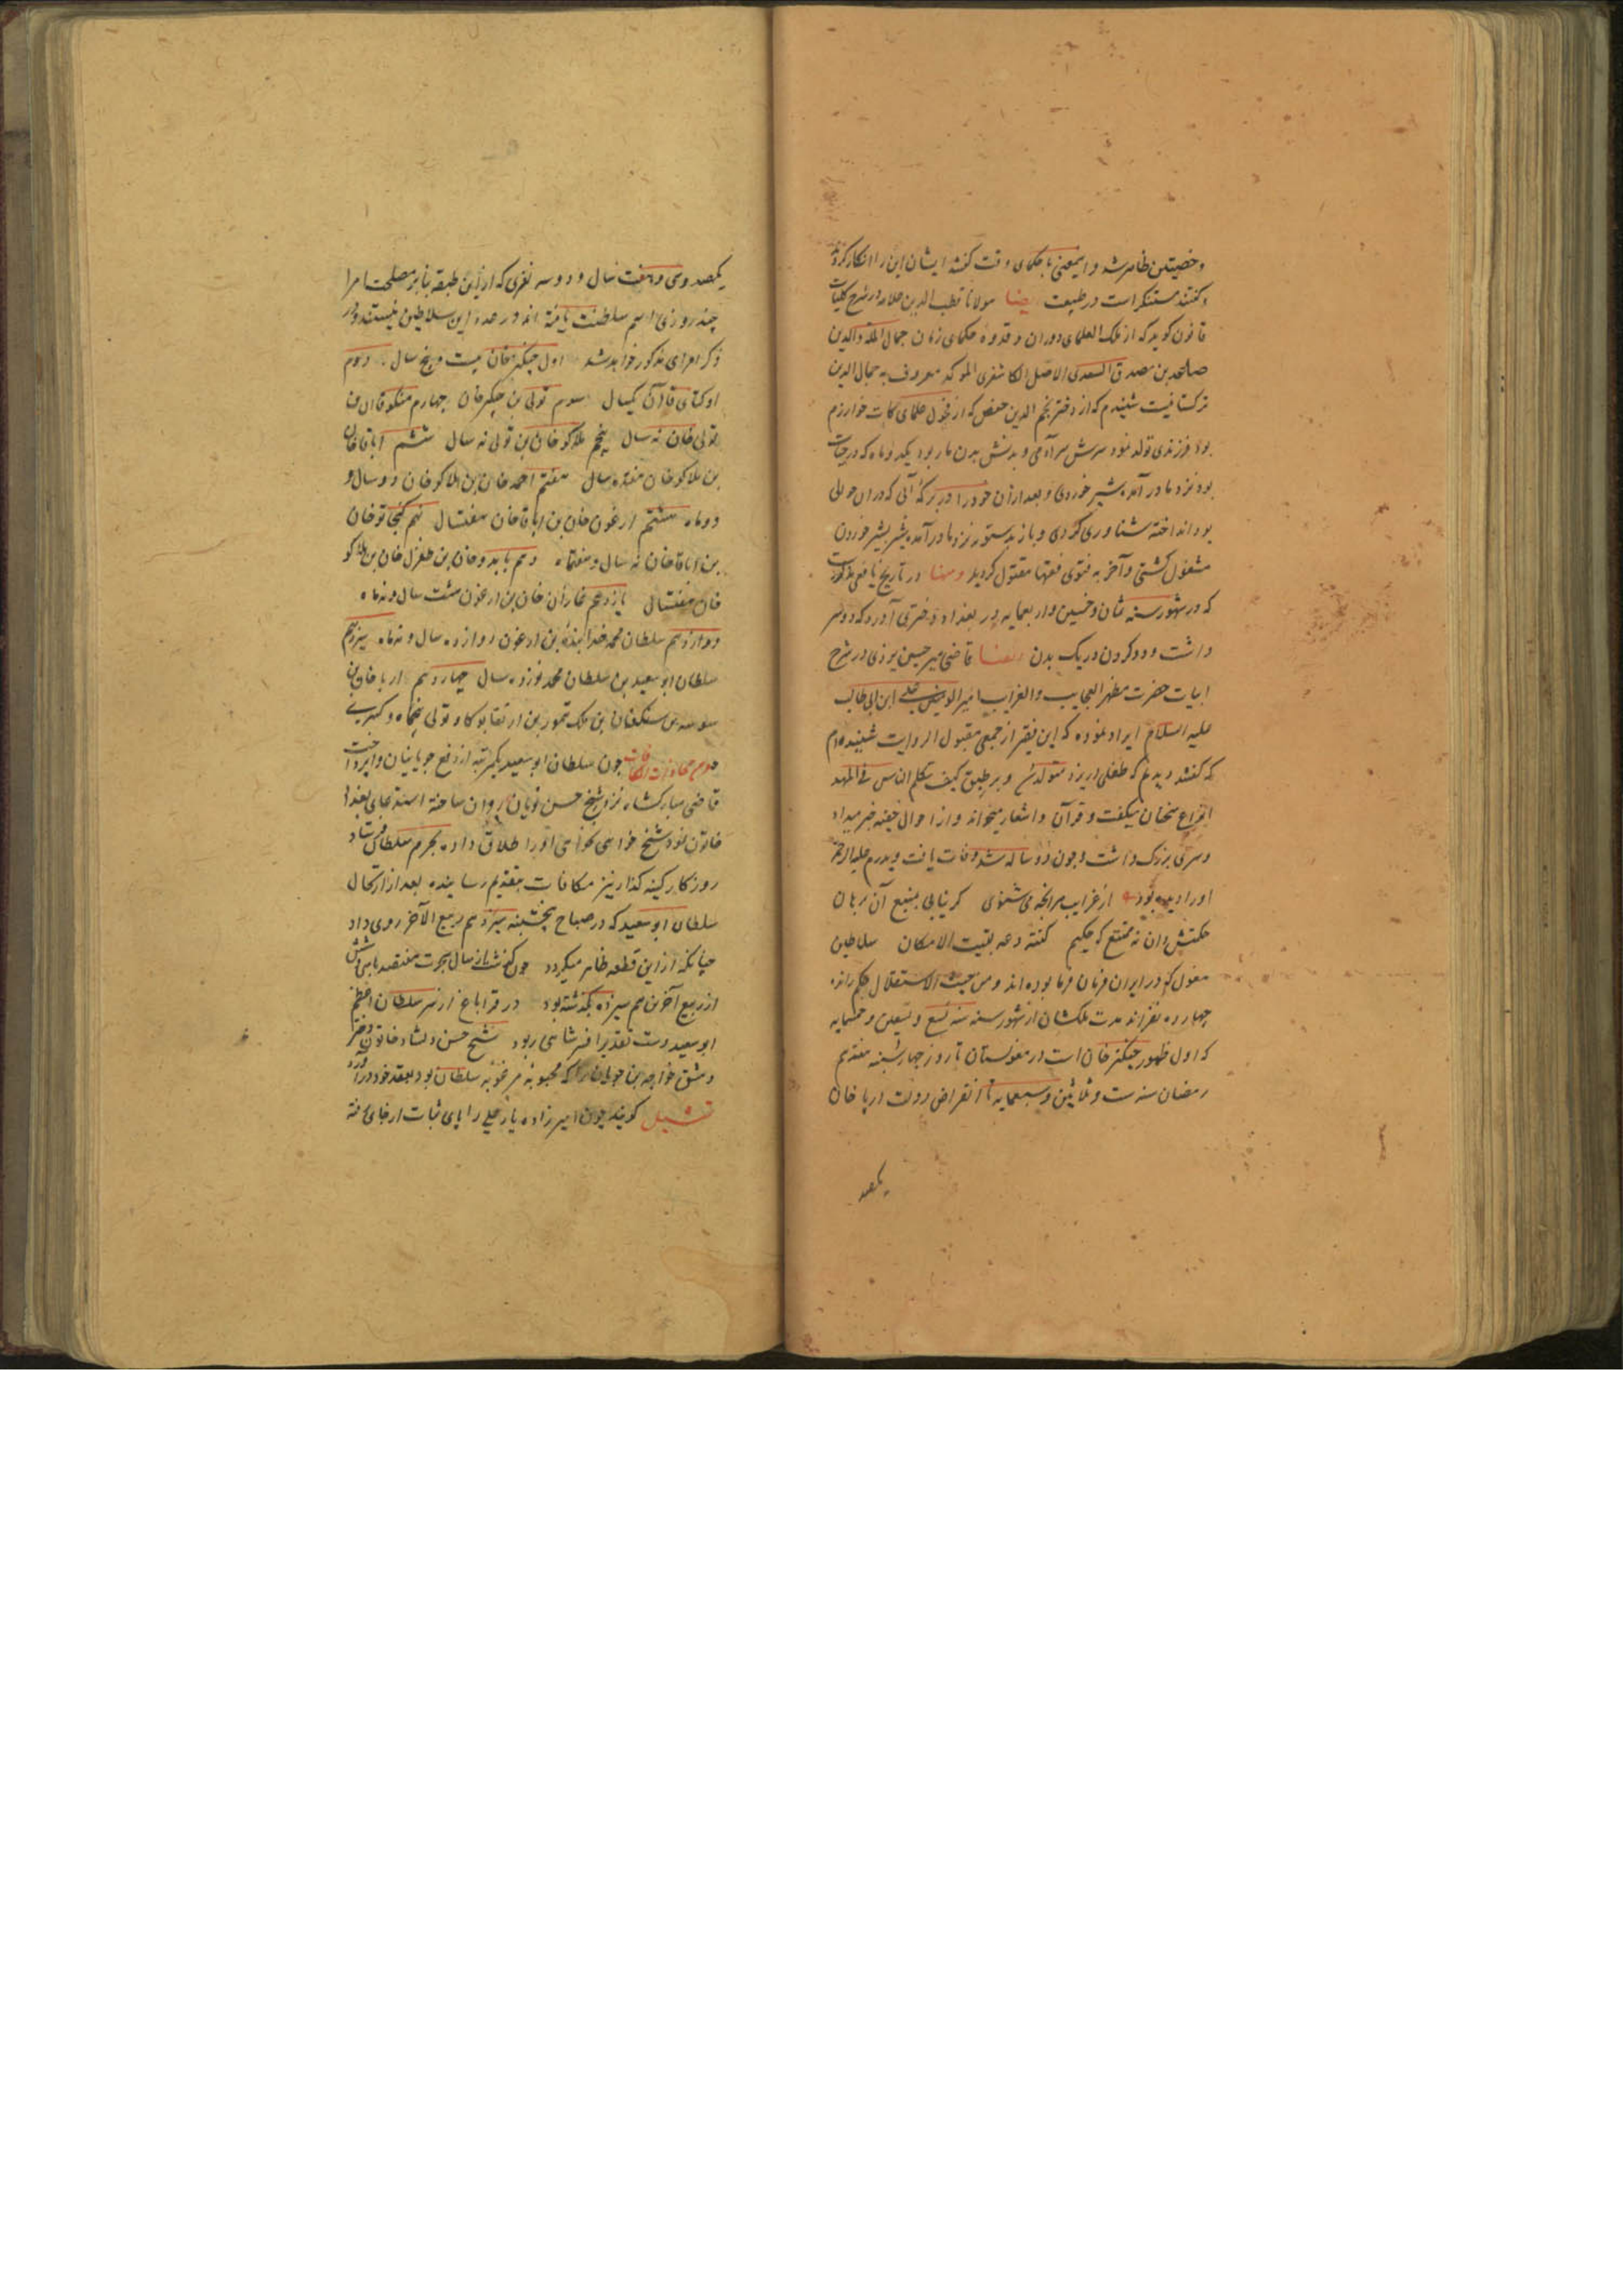 و خصیتین ظاهر شد و اینمعنی با حکمای وقت گفتند ایشان این را انکار کردند
و گفتند مستنکر است در طبیعت ایضا مولانا قطب الدین علامه در شرح کلیات
قانون گوید که از ملک العلمای دوران و قدوه حکمای زمان جمال المله والدین
صاعد بن مصدق السعدی الاصل الکاشغری المولد که معروف به جمال الدین
ترکستانیست شنیدم که از دختر نجم الدین حفص که از فحول علمای کات خوارزم
بود فرزندی تولد نمود سرش سر آدمی و بدنش بدن مار بود یکدو ماه که در حیات
بود نزد مادر آمده شیر خوردی و بعد از آن خود را در برکه آبی که در آن حوالی
بود انداخته شناوری کردی و باز بدستور نزد مادر آمده بشیر خوردن
مشغول گشتی و آخر به فتوی فقها مقتول گردید و منها در تاریخ یافعی مذکور است
که در شهور سنه ثمان و خمسین و اربعمایه در بغداد دختری آورد که دو سر
داشت و دو گردن در یک بدن و منها قاضی میر حسین یزدی در شرح
ابیات حضرت مظهر العجایب والغرایب امیر المومنین علی ابن ابی طالب
علیه السلام ایراد نموده که این فقیر از جمعی مقبول الروایت شنیده ام
که گفتند دیدیم که طفلی در یزد متولد شد و بر طبق کیف یتکلم الناس فی المهد
انواع سخنان میگفت و قرآن و اشعار میخواند و از احوال خفیه خبر میداد
و سری بزرگ داشت و چون دو ساله شد وفات یافت و پدرم علیه الرحمه
او را دیده بود از غرایب هر آنچه می شنوی گر نیابی بمنع آن برهان
حکمتش دان نه ممتنع که حکیم گفته دعه بقیت الامکان سلاطین
مغول که در ایران فرمان فرما بوده اند و من حیث الاستقلال حکم رانده
چهارده نفرند مدت ملکشان از شهور سنه تسع و تسعین و خمسمایه
که اول ظهور جنگیز خان است در مغولستان تا روز چهارشنبه هفتدهم
رمضان سنه ست و ثلاثین و سبعمایه تا انقراض دولت ارپا خان
یکصد
یکصد و سی و هفت سال و دو سه نفری که از این طبقه بنابر مصلحت امرا
چند روزی اسم سلطنت یافته اند و در عدد این سلاطین نیستند در
ذکر امرای مذکور خواهد شد اول جنگیز خان بیست و پنج سال دوم
اوکتای قاآن یکسال سوم تولی بن جنگیز خان چهارم منکو قاآن بن
تولی خان نه سال پنجم هلاکو خان بن تولی نه سال ششم اباقا خان
بن هلاکو خان هفده سال هفتم احمد خان بن هلاکو خان دو سال و
دو ماه هشتم ارغون خان بن اباقا خان هفتسال نهم کنجاتو خان
بن اباقا خان نه سال و هفتماه دهم بایدو خان بن طغزل خان بن هلاکو
خان هفتسال یازدهم غازان خان بن ارغون هشت سال و نه ماه
دوازدهم سلطان محمد خدا بنده بن ارغون دوازده سال و نه ماه سیزدهم
سلطان ابو سعید بن سلطان محمد نوزده سال چهاردهم ارپا خان بن
سوسه بن سنکقان بن ملک تمور بن ارتقابوکا و تولی پنجماه و کسری
چون سلطان ابو سعید یکمرتبه از دفع چوپانیان وا پرداخت
قاضی مبارکشاه نزد شیخ حسن نویان روان ساخته استدعای بغداد
خاتون نمود شیخ خواهی نخواهی او را طلاق داده بحرم سلطان فرستاد
روزگار کینه گذار نیز مکافات بتقدیم رسانیده بعد از ارتحال
سلطان ابو سعید که در صباح پنجشنبه سیزدهم ربیع الآخر روی داد
چنانکه از این قطعه ظاهر میگردد چون گذشت از سال هجرت هفتصد با سی و شش
از ربیع آخرین هم سیزده بگذشته بود در قراباغ از سر سلطان اعظم
ابو سعید دست تقدیر افسر شاهی ربود شیخ حسن دلشاد خاتون دختر
دمشق خواجه بن چوپان را که محبوبه مرغوبه سلطان بود بعقد خود در آورد
تمثیل گویند چون امیر زاده یار علی را پای ثبات از جای رفته